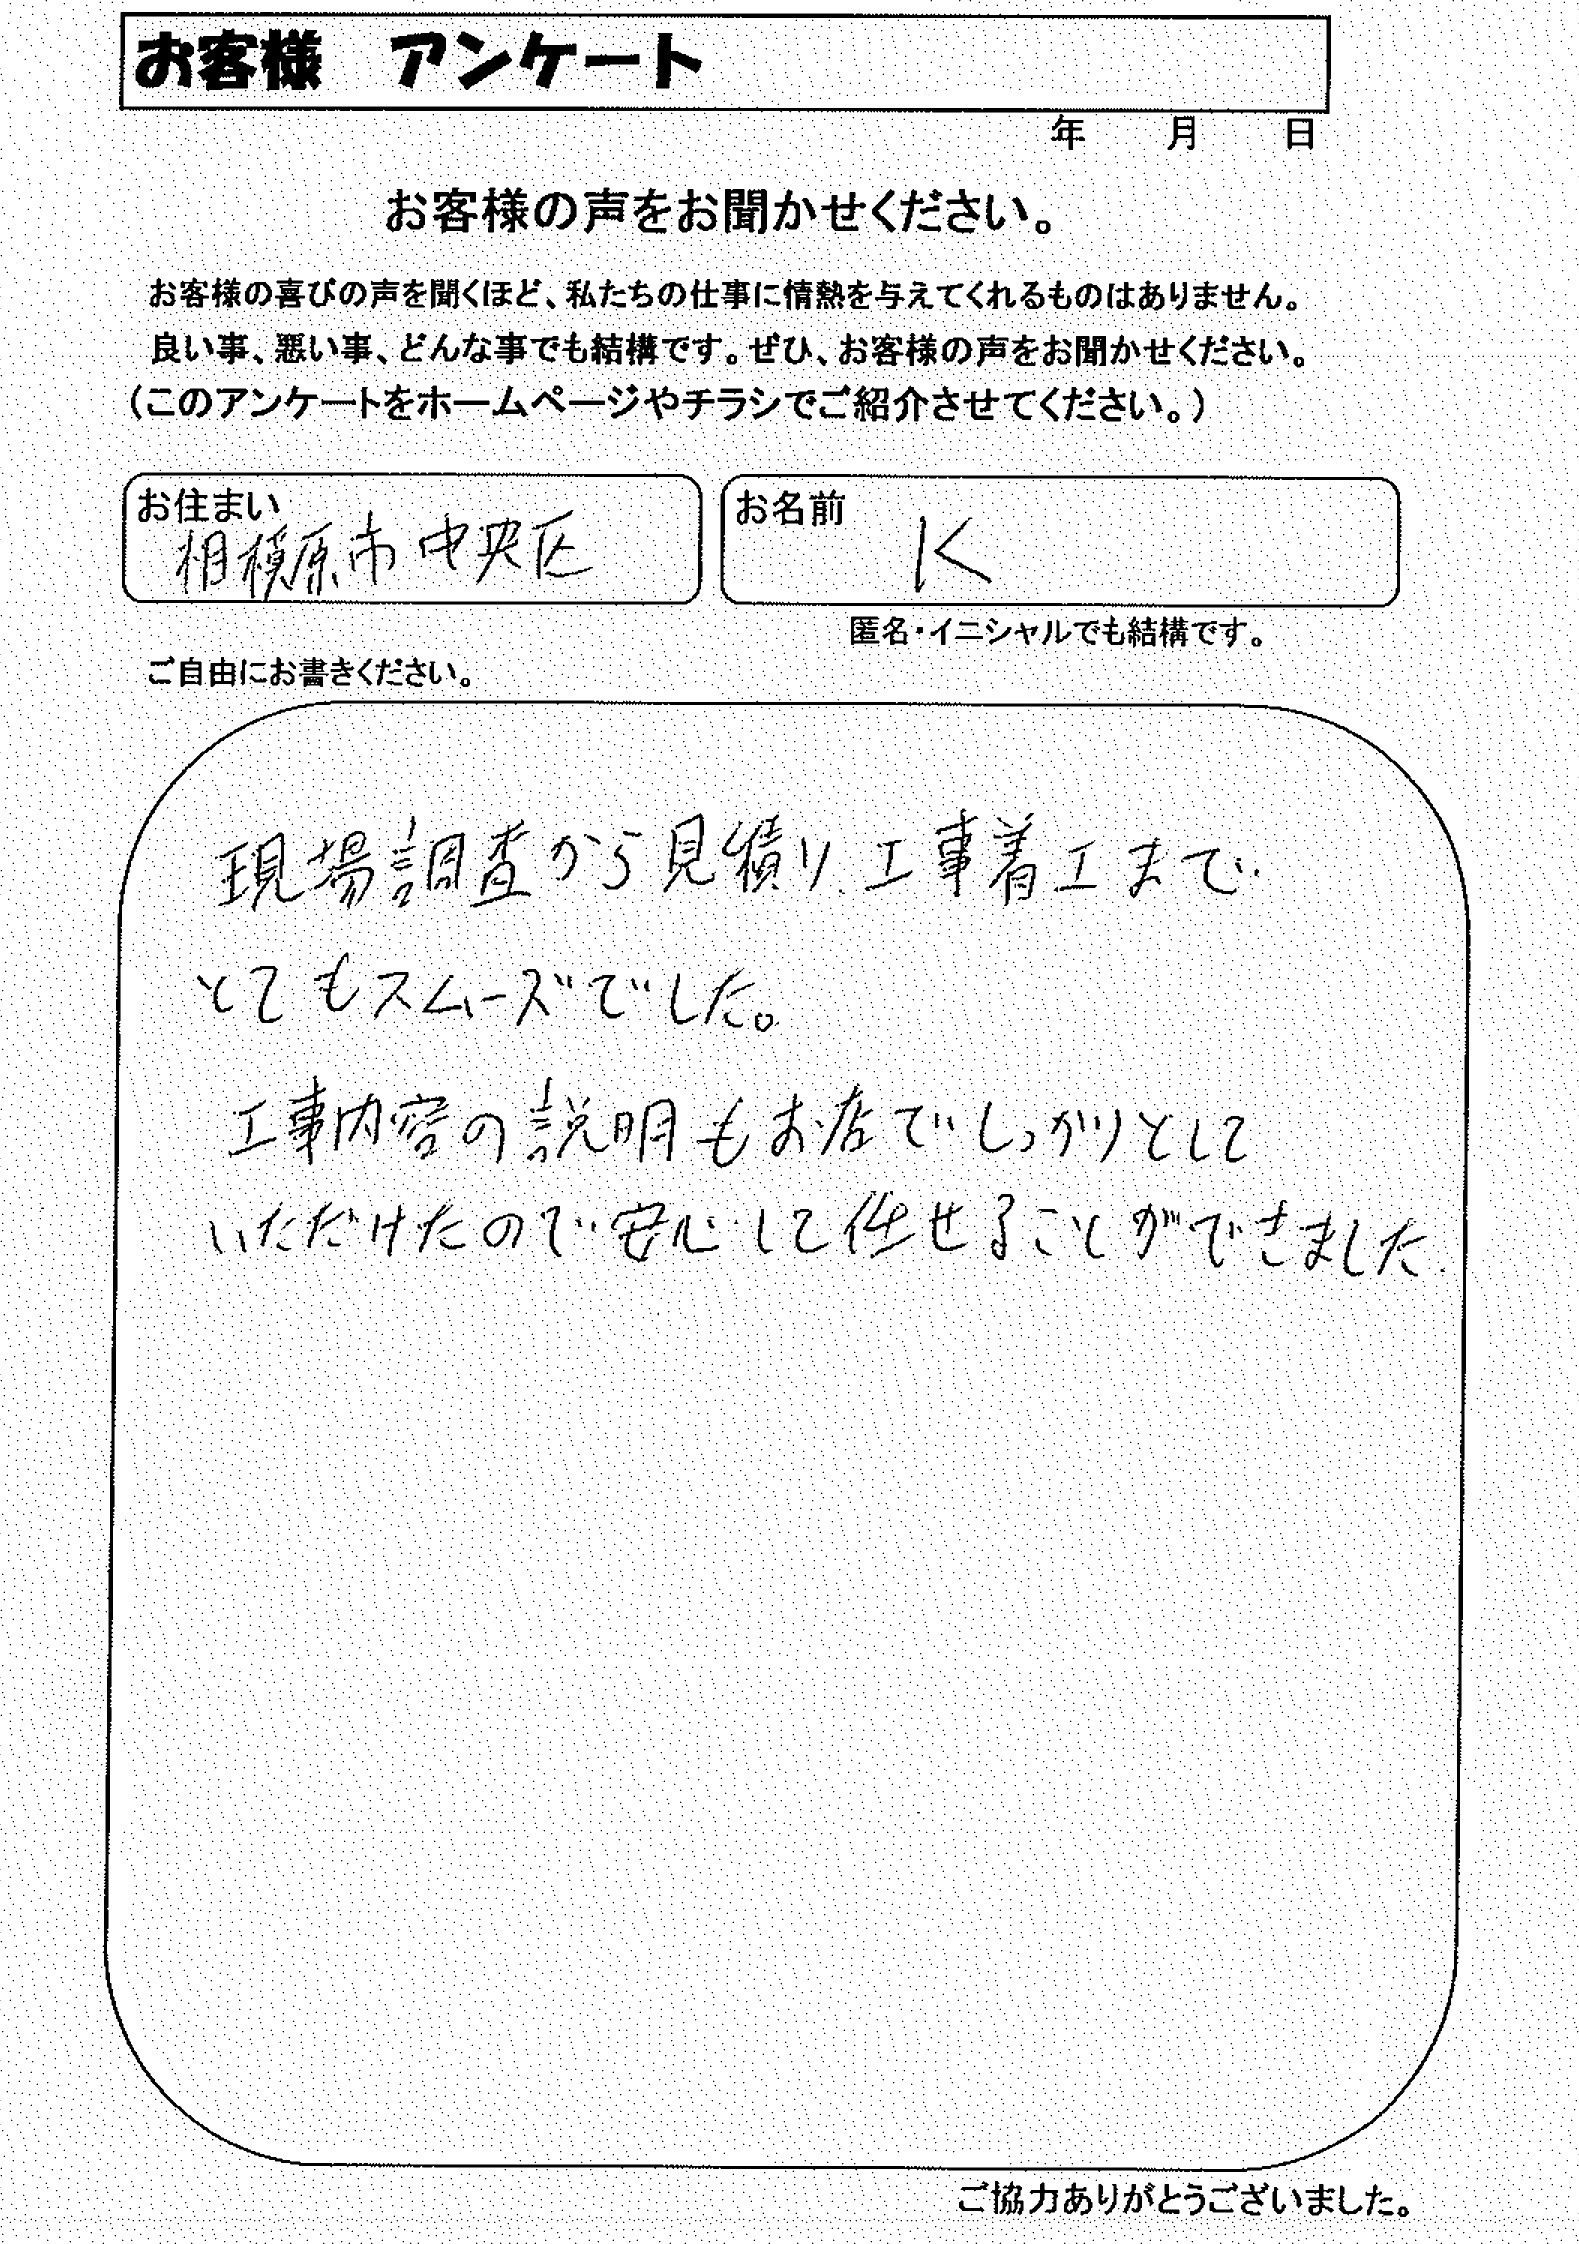 お客様　アンケート
年　　月　　日
お客様の声をお聞かせください。
お客様の喜びの声を聞くほど、私たちの仕事に情熱を与えてくれるものはありません。
良い事、悪い事、どんな事でも結構です。ぜひ、お客様の声をお聞かせください。
（このアンケートをホームページやチラシでご紹介させてください。）
お住まい
相模原市中央区
お名前
K
匿名・イニシャルでも結構です。
ご自由にお書きください。
現場調査から見積り、工事着工まで
とてもスムーズでした。
工事内容の説明もお店でしっかりとして
いただけたので安心して任せることができました.
ご協力ありがとうございました。